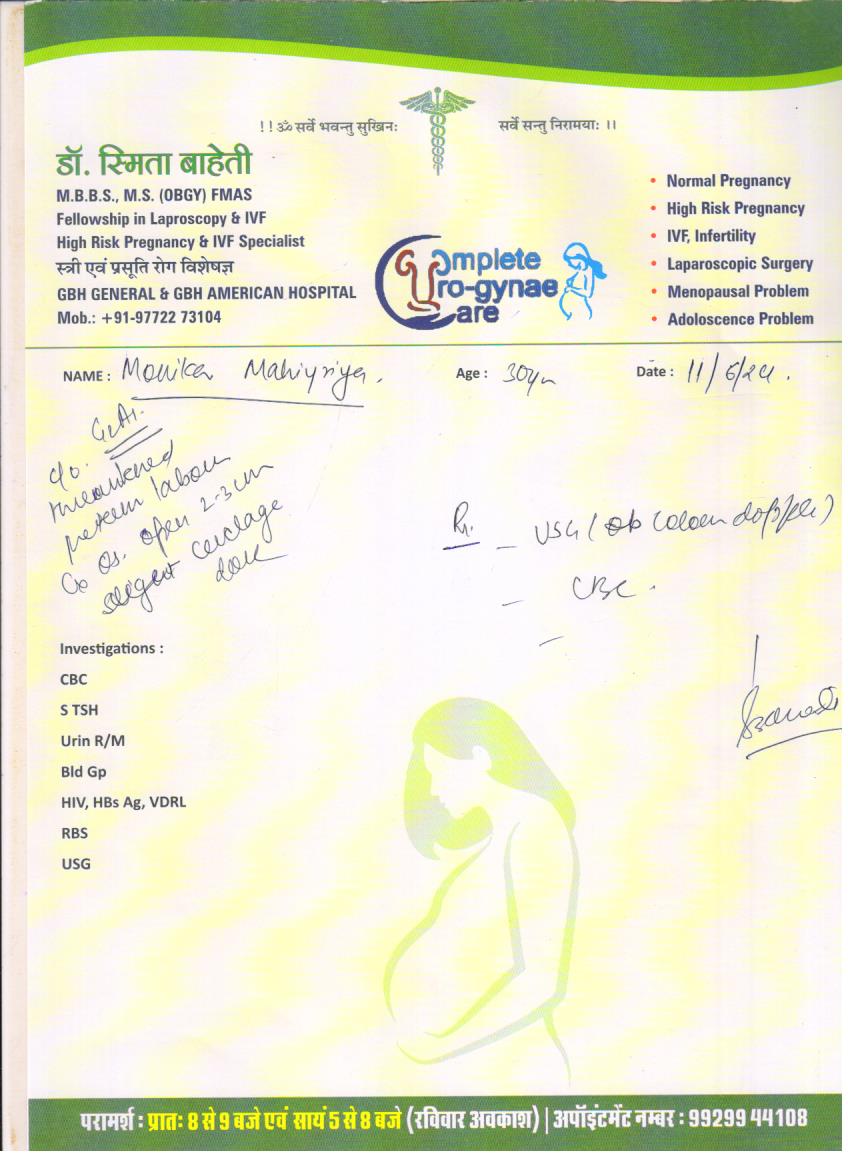 !!ॐ सर्वे भवन्तु सुखिनः सर्वे सन्तु निरामयाः ।।
डॉ. स्मिता बाहेती
M.B.B.S., M.S. (OBGY) FMAS
Fellowship in Laproscopy & IVF
High Risk Pregnancy & IVF Specialist
स्त्री एवं प्रसूति रोग विशेषज्ञ
GBH GENERAL & GBH AMERICAN HOSPITAL
Mob.: +91-97722 73104
Complete
Uro-gynae
Care
• Normal Pregnancy
• High Risk Pregnancy
• IVF, Infertility
• Laparoscopic Surgery
• Menopausal Problem
• Adoloscence Problem
NAME : Age : 30yr Date : 11/6/24.
c/o
threatened
preterm labour
Cx Os. open 2-3cm
cerclage
done
Rx. – USG (Ob colour doppler)
– CBC.
–
Investigations :
CBC
S TSH
Urin R/M
Bld Gp
HIV, HBs Ag, VDRL
RBS
USG
परामर्श : प्रातः 8 से 9 बजे एवं सायं 5 से 8 बजे (रविवार अवकाश) | अपॉइंटमेंट नम्बर : 99299 44108